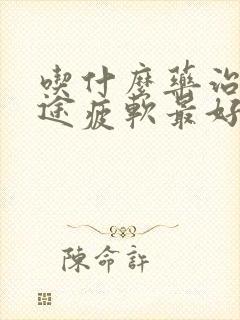 喫什麼藥治
途疲軟最好
陳命許